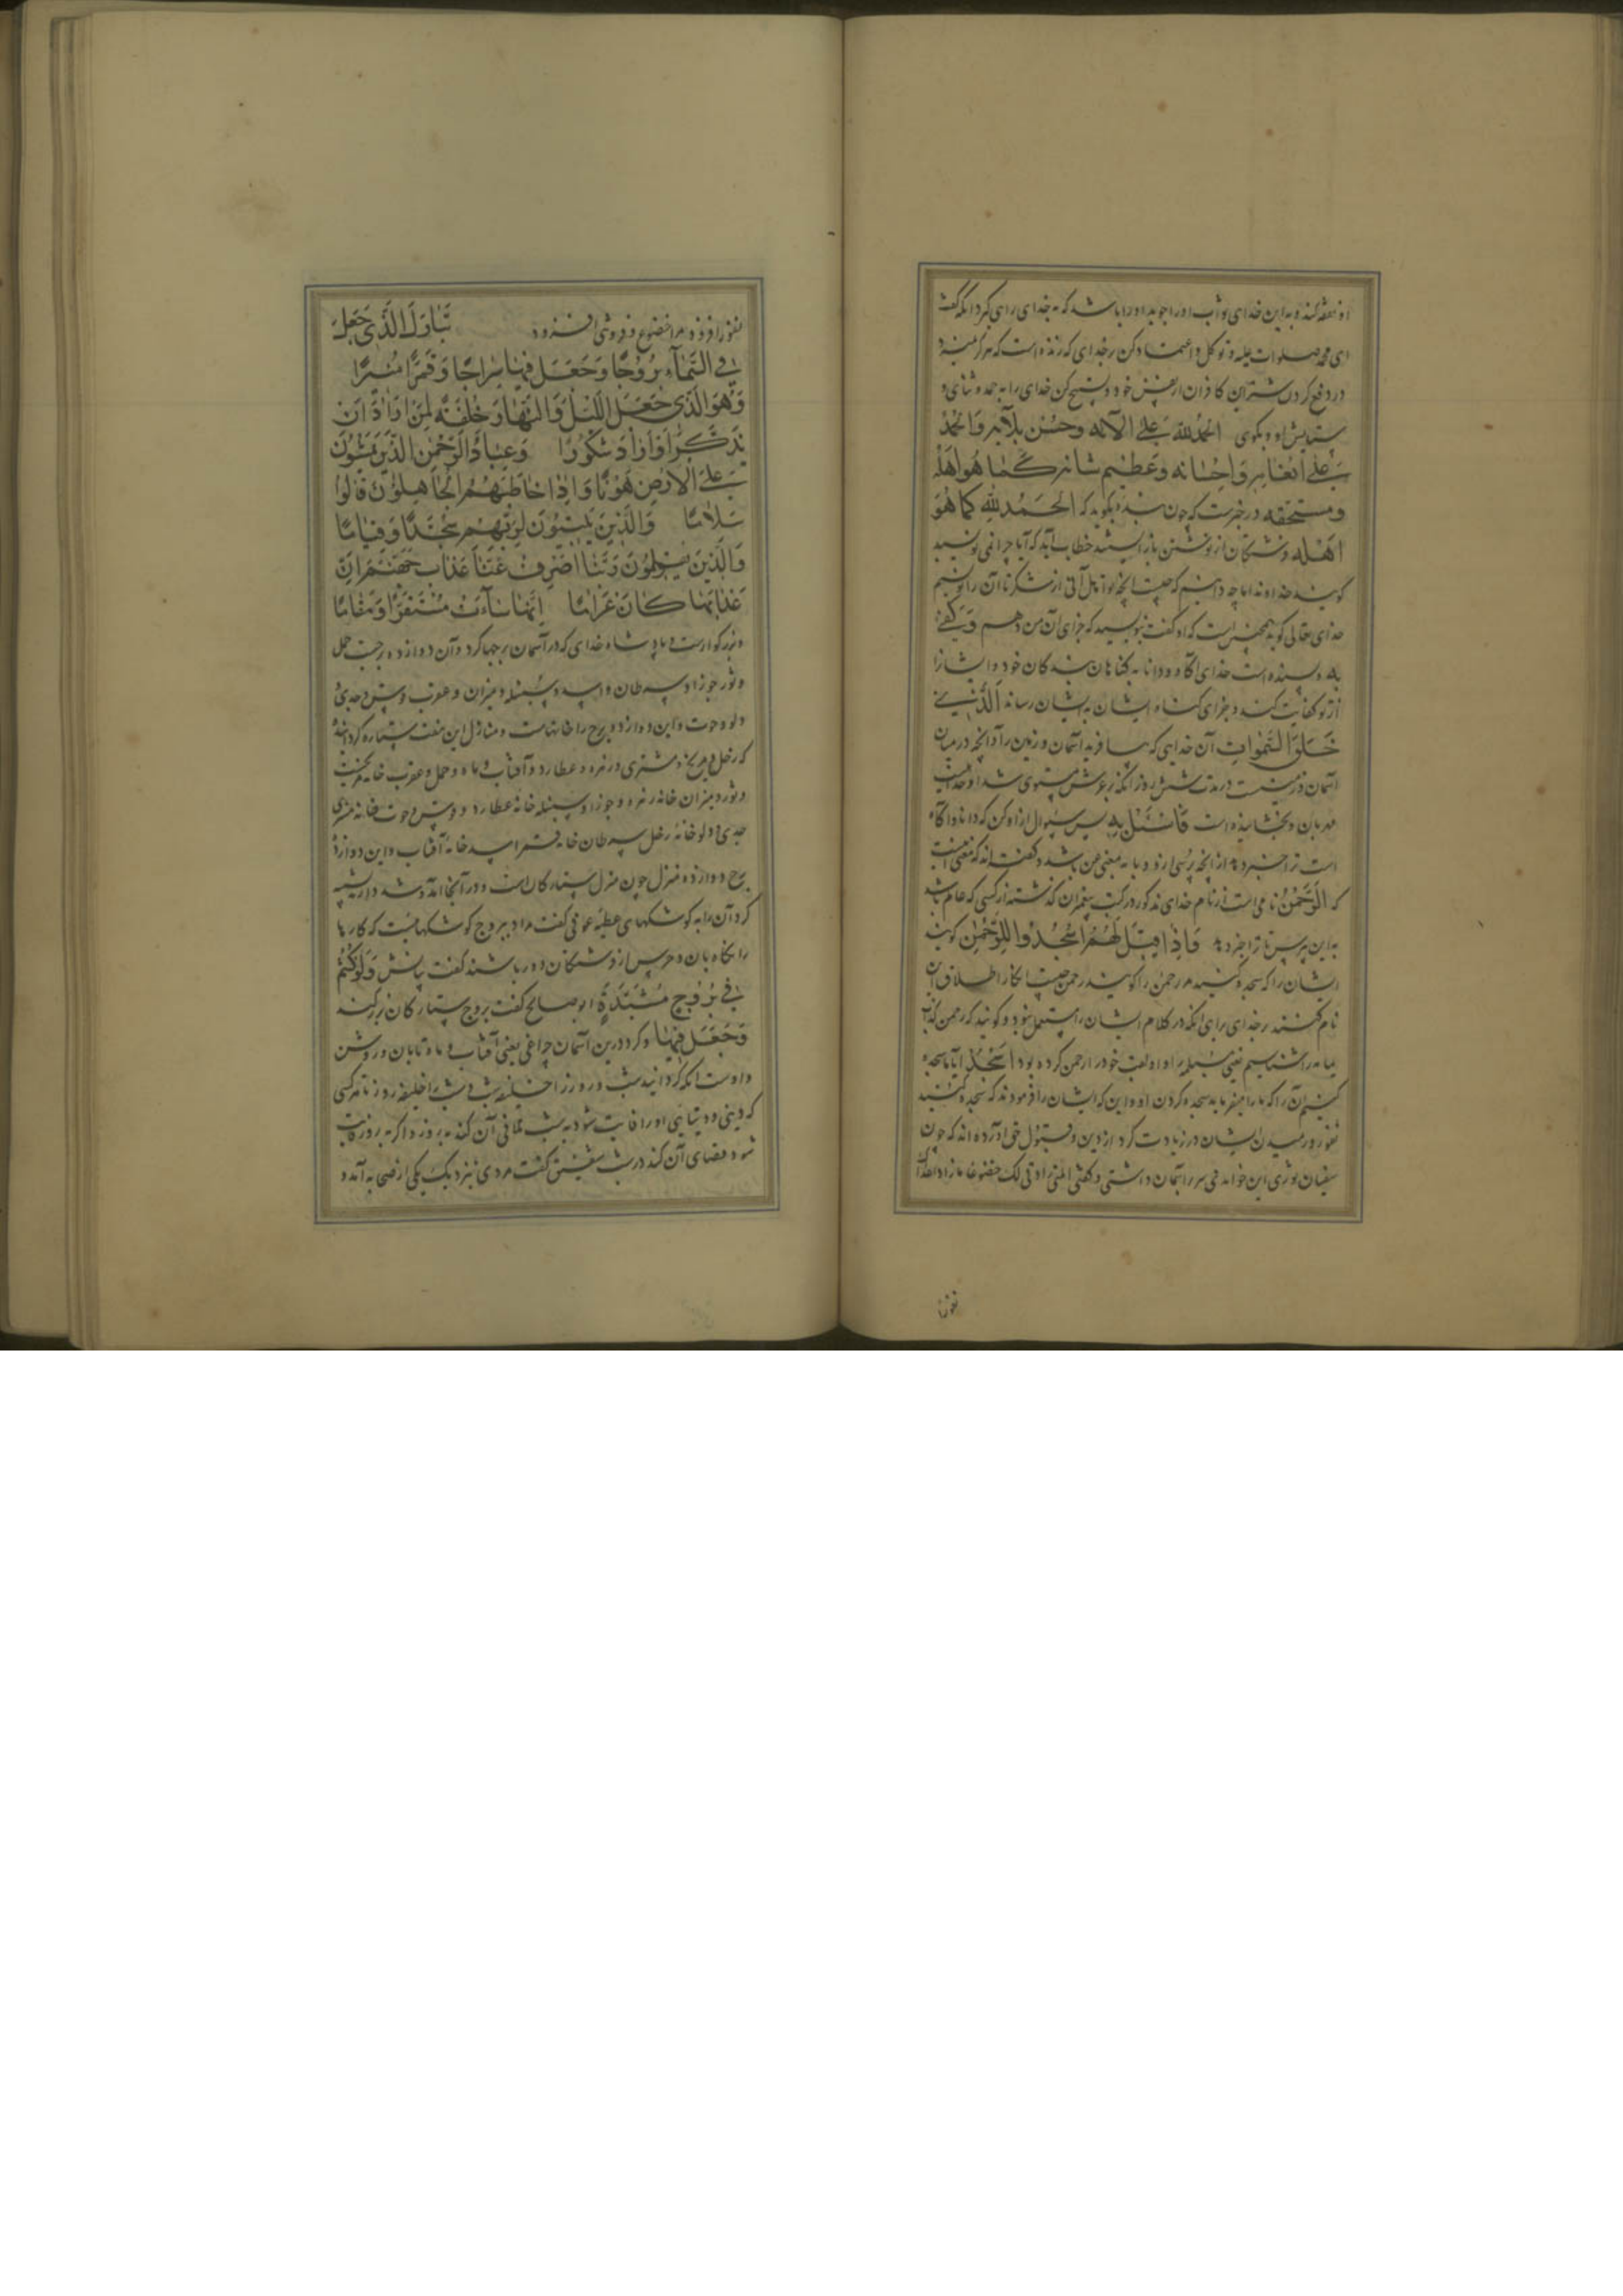 او نفقه کند و به این خدای ثواب او را جوید او را باشد که به خدای راهی گیرد آنکه گفت
ای محمد صلوات علیه و توکل و اعتماد کن بر خدای که زنده است که هرگز نمیرد
در دفع کردن شر این کافران از نفس خود و تسبیح کن خدای را به حمد و ثنای و
ستایش او و بگوی الحمد لله علی الآئه وحسن بلآئه والحمد
علی انعامه واحسانه وعظیم شانه کما هو اهله
ومستحقه در خبرست که چون بنده بگوید که الحمد لله کما هو
اهله فرشتگان از نوشتن باز ایستند خطاب آید که آیا چرا نمی نویسید
گویند خداوندا ما چه دانیم که چیست آنچه تو اهل آنی از شکر تا آن را نویسیم
خدای تعالی گوید همچنین است که او گفت بنویسید که جزای آن من دهم وکفی
به و بسنده است خدای آگاه و دانا به گناهان بندگان خود و ایشان را
از تو کفایت کند و جزای گناه ایشان به ایشان رساند الذی
خلق السموات آن خدایی که بیافرید آسمان و زمین را و آنچه در میان
آسمان و زمینست در مدت شش روز آنکه بر عرش مستوی شد او خدای
مهربان و بخشاینده است فاسئل به پس سوال ازو کن که دانا و آگاه
است ترا خبر دهد از آنچه پرسی ازو و با به معنی عن باشد و گفته‌اند که معنی آنست
که الرحمن نامی است از نام خدای مذکور در کتب پیغمبران گذشته از کسی که عالم باشد
به این پرس تا ترا خبر دهد فاذا قیل لهم اسجدوا للرحمن گویند
ایشان را که سجده کنید مر رحمن را گویند رحمن چیست انکار اطلاق این
نام کنند بر خدای برای آنکه در کلام ایشان مستعمل نبود و گویند که رحمن کذاب
یمامه را شناسیم یعنی مسیلمه را و او لقب خود را رحمن کرده بود انسجد آیا ما سجده
کنیم آن را که ما را میفرماید سجده کردن او و این که ایشان را فرمودند که سجده کنید
نفور و رمیدن ایشان در زیادت کرد از دین و قبول حق آورده‌اند که چون
سفیان ثوری این خواندی سر بر آسمان داشتی و گفتی الهی زادنی لک خضوعا ما زاد اعداک
نفور
نفورا فزود مرا خضوع و فروتنی افزود تبارک الذی جعل
فی السمآء بروجا وجعل فیها سراجا وقمرا منیرا
وهو الذی جعل اللیل والنهار خلفة لمن اراد ان
یذکر او اراد شکورا وعباد الرحمن الذین یمشون
علی الارض هونا واذا خاطبهم الجاهلون قالوا
سلاما والذین یبیتون لربهم سجدا وقیاما
والذین یقولون ربنا اصرف عنا عذاب جهنم ان
عذابها کان غراما انها سآءت مستقرا ومقاما
بزرگوارست و پادشاه خدای که در آسمان برجها کرد و آن دوازده برجست حمل
و ثور و جوزا و سرطان و اسد و سنبله و میزان و عقرب و قوس و جدی و
دلو و حوت و این دوازده برج را خانهاست و منازل این هفت ستاره گردانیده
که زحل و مریخ و مشتری و زهره و عطارد و آفتاب و ماه و حمل و عقرب خانه مریخست
و ثور و میزان خانه زهره و جوزا و سنبله خانه عطارد و قوس و حوت خانه مشتری
جدی و دلو خانه زحل سرطان خانه قمر اسد خانه آفتاب و این دوازده
برج و دوازده منزل چون منزل ستارگان است و در آنجا آمد و شد دارند تشبیه
کرد آن را به کوشکهای عطیه عوفی گفت مراد به بروج کوشکهاست که کار ما
را نگاه بان و حرس از فرشتگان در و باشند گفت بیانش ولو کنتم
فی بروج مشیدة ابو صالح گفت بروج ستارگان بزرگند
وجعل فیها و کرد درین آسمان چراغی یعنی آفتاب و ماه تابان و روشن
و اوست آنکه گردانید شب و روز را خلیفه شب و شب را خلیفه روز تا هر کسی
که دینی و دنیایی او را فایت شود به شب تلافی آن کند به روز و اگر به روز فایت
شود قضای آن کند در شب شقیق گفت مردی به نزدیک یکی از صحابه آمد و